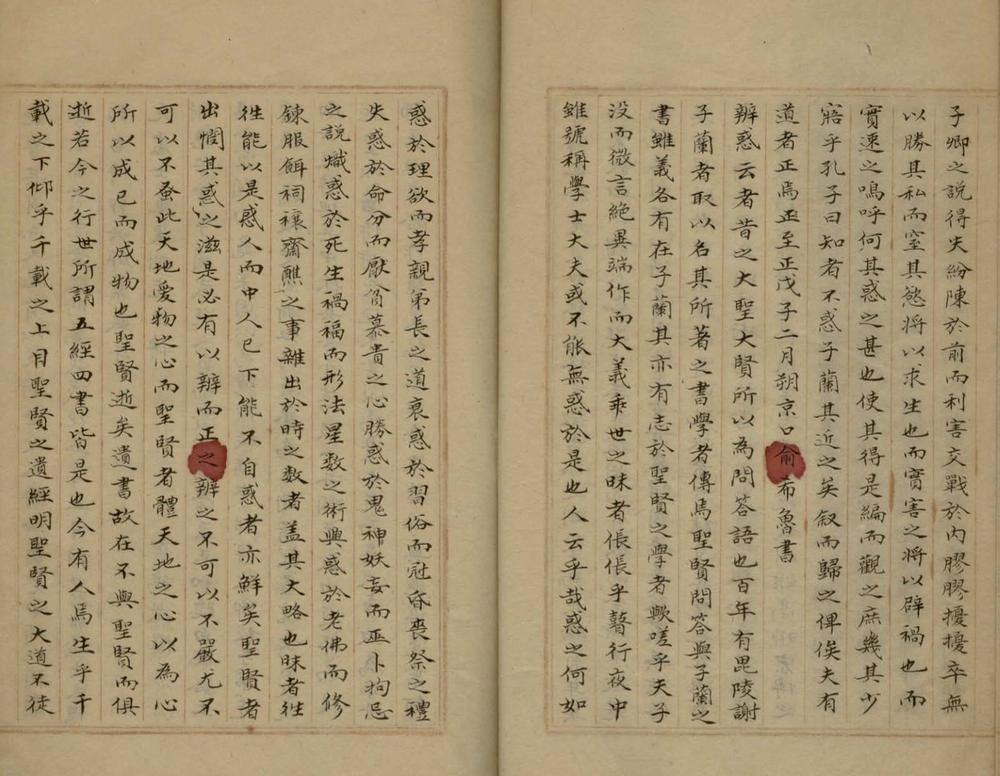 子卿之說得失紛陳於前而利害交戰於內膠膠擾擾卒無
以勝其私而窒其慾將以求生也而實害之將以辟禍也而
實速之嗚呼何其惑之甚也使其得是編而觀之庶幾其少
寤乎孔子曰知者不惑子蘭其近之矣叙而歸之俾俟夫有
道者正焉至正戊子二月朔京口俞希魯書
辨惑云者昔之大聖大賢所以為問答語也百年有毘陵謝
子蘭者取以名其所著之書學者傳焉聖賢問答與子蘭之
書雖義各有在子蘭其亦有志於聖賢之學者歟嗟乎夫子
没而微言絕異端作而大義乖世之昧者倀倀乎瞽行夜中
雖號稱學士大夫或不能無惑於是也人云乎哉惑之何如
惑於理欲而孝親弟長之道衰惑於習俗而冠昏喪祭之禮
失惑於命分而厭貧慕貴之心勝惑於鬼神妖妄而巫卜拘忌
之說熾惑於死生禍福而形法星數之術興惑於老佛而修
鍊服餌祠禳齋醮之事雜出於時之数者盖其大略也昧者徃
徃能以是惑人而中人已下能不自惑者亦鮮矣聖賢者
出憫其惑之滋是必有以辨而正之辨之不可以不嚴尤不
可以不蚤此天地愛物之心而聖賢者體天地之心以為心
所以成已而成物也聖賢逝矣遺書故在不與聖賢而俱
逝若今之行世所謂五經四書皆是也今有人焉生乎千
載之下仰乎千載之上目聖賢之遺經明聖賢之大道不徒